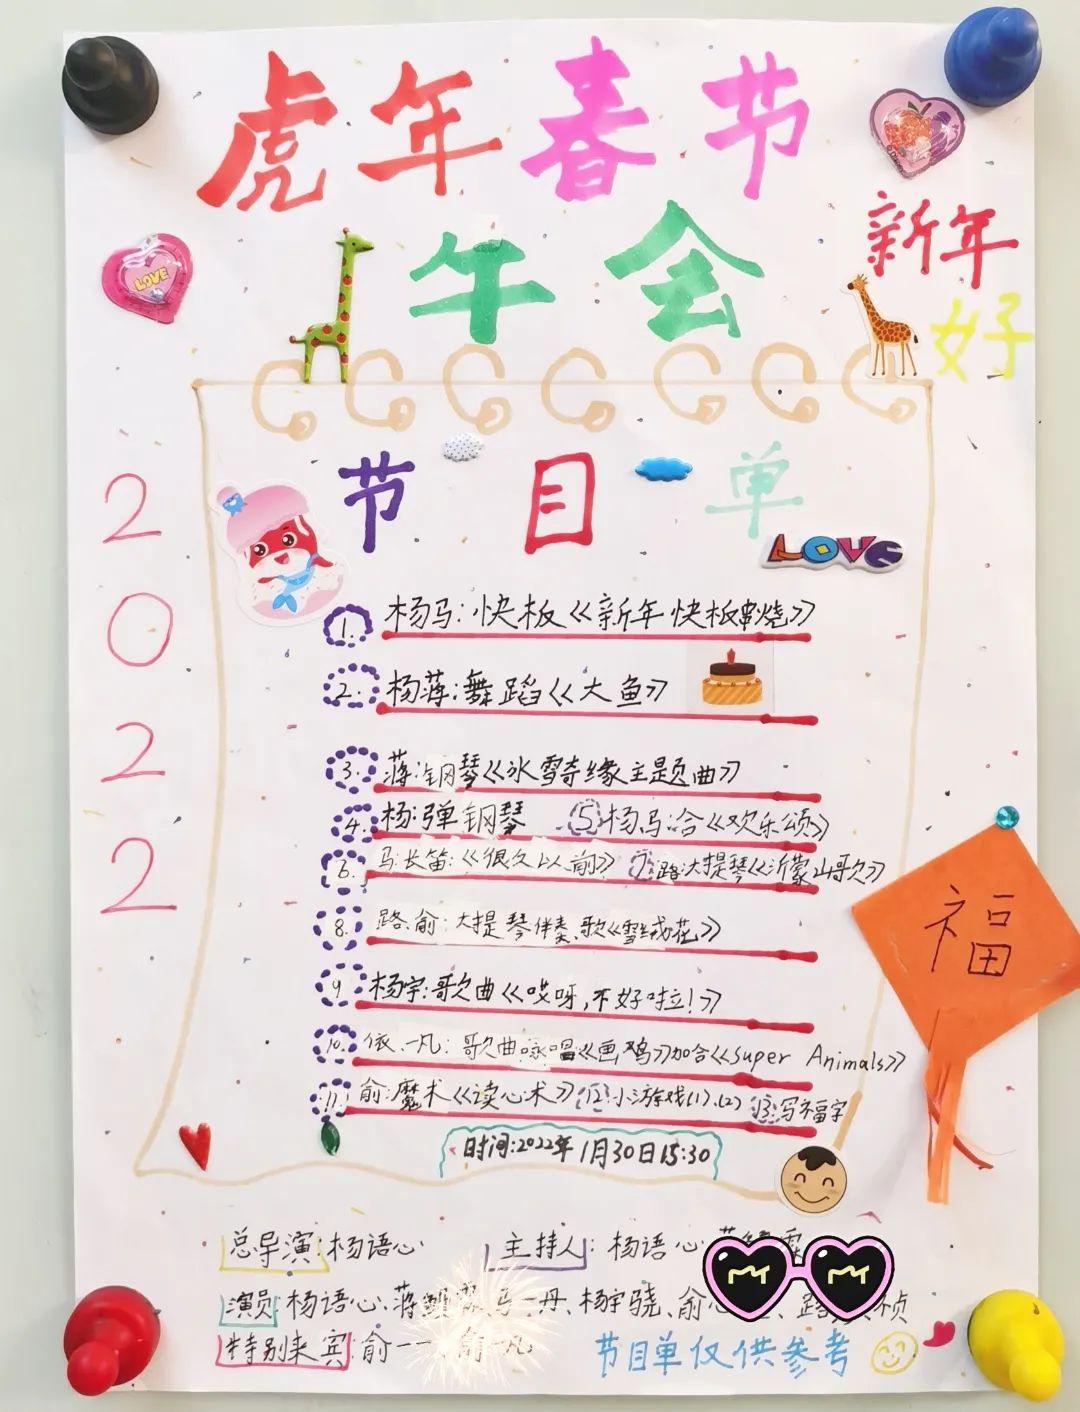 虎年春节
午会
新年
好
LOVE
2022
节目单
LOVE
1. 杨马:快板《新年快板串烧》
2. 杨蒋:舞蹈《大鱼》
3. 蒋:钢琴《冰雪奇缘主题曲》
4. 杨:弹钢琴 5 杨马:合《欢乐颂》
6. 马:长笛:《很久以前》 7. 路:大提琴《沂蒙山歌》
8. 路、俞:大提琴伴奏、歌《雪绒花》
9 杨宇:歌曲《哎呀,不好啦!》
10. 依、一凡:歌曲咏唱《画鸡》加合《super Animals》
11. 俞:魔术《读心术》 12 小游戏(1)、(2) 13:写福字
时间:2022年1月30日15:30
福
总导演:杨语心 主持人:杨语心
演员:杨语心、蒋 丹、杨宇骁、俞心 、路 祯
特别来宾:俞一 凡
节目单仅供参考